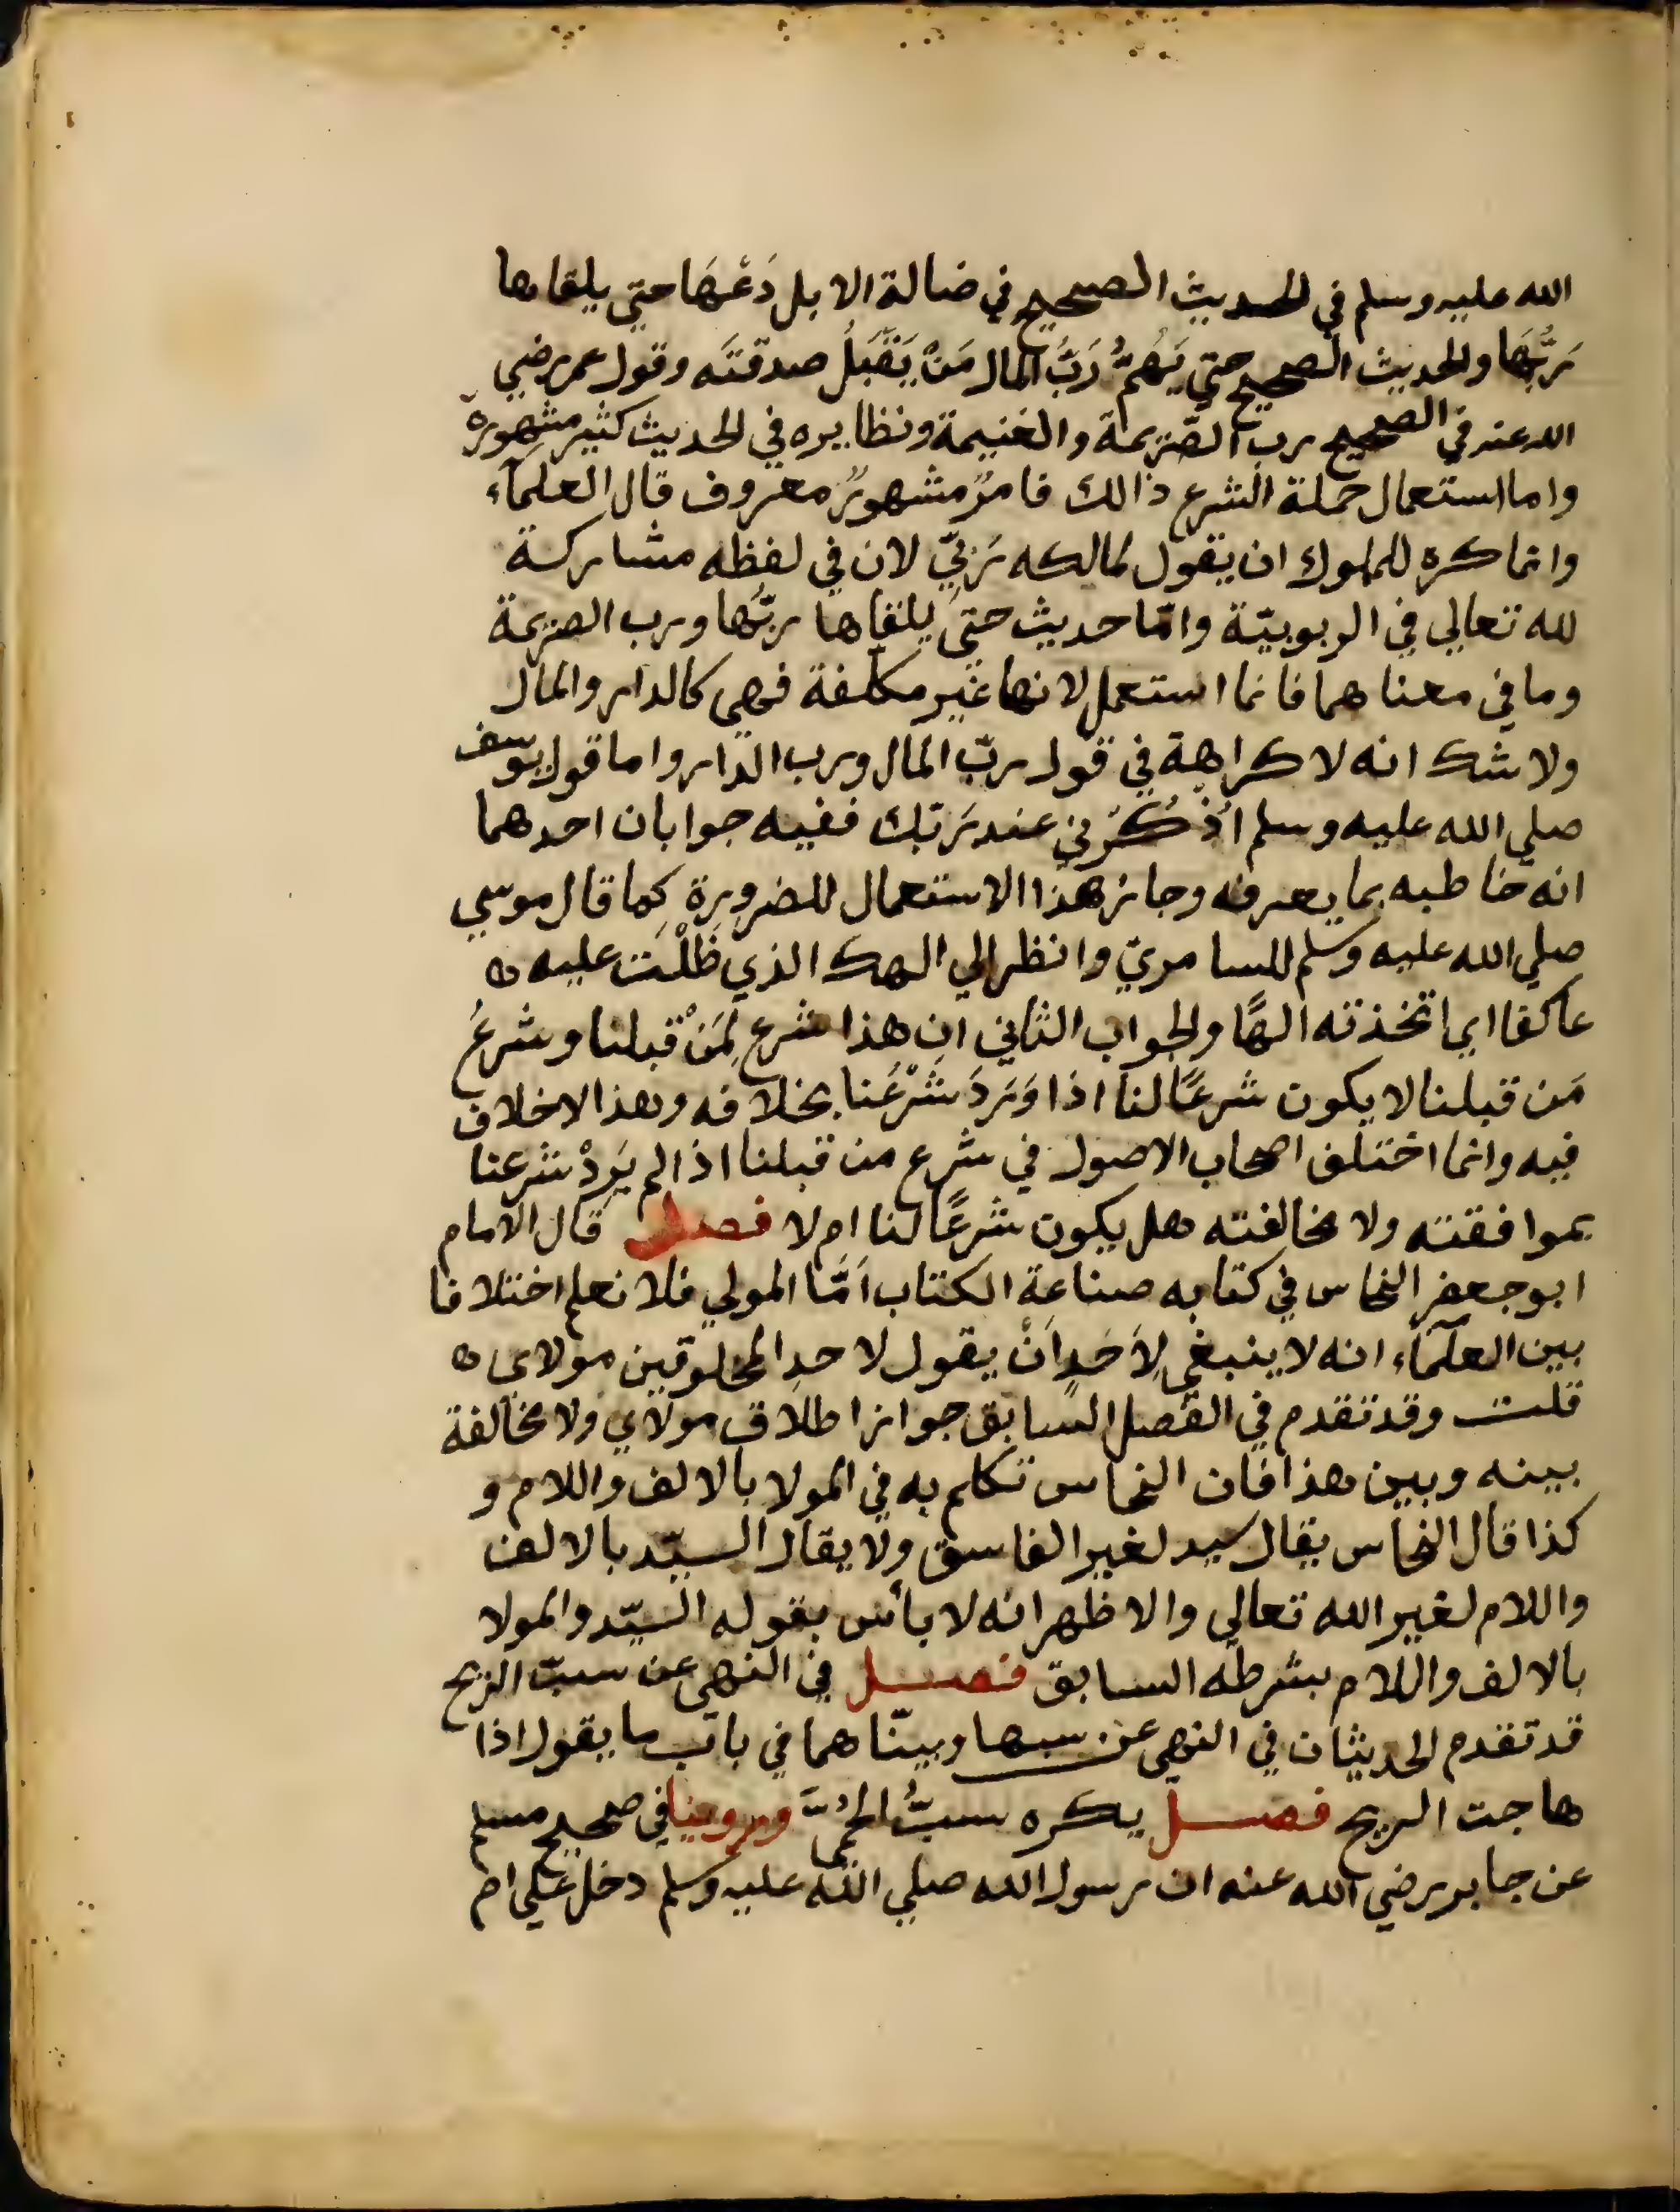 الله عليه وسلم في الحديث الصحيح في ضالة الابل دَعْهَا حتي يلقاها
رَبُّهَا والحديث الصحيح حتي يَهُمَّ رَبُّ المال مَنْ يَقْبَلُ صدقتَه وقول عمر رضي
الله عنه في الصحيح رب الصّريمة والغنيمة ونظايره في الحديث كثير مشهورة
واما استعمال حملة الشرع ذالك فامرٌ مشهورٌ معروف قال العلمآء
وانما كره للملوك ان يقول لمالكه رَبيّ لان في لفظه مشاركة
لله تعالي في الربوبيّة وامّا حديث حتيَ يلقاها ربّهُا ورب الصريمة
وما في معناهما فانما استعمل لانها غير مكلفة فهي كالدار والمال
ولا شك انه لا كراهة في قول ربّ المال ورب الدّار واما قول يوسف
صلي الله عليه وسلم اُذْكُرْني عند رَبّك ففيه جوابان احدهما
انه خاطبه بما يعرفه وجائز هذا الاستعمال للضرورة كما قال موسي
صلي الله عليه وسلم للسامريّ وانظر الي الهك الذي ظَلْتَ عليه ه
عاكفا اي اتخذته الهًا والجواب الثاني ان هذا شرع لِمَنْ قبلنا وشرعُ
مَن قبلنا لا يكون شرعًا لنا اذا وَرَدَ شَرْعُنا بخلافه وهذا لاخلاف
فيه وانما اختلف اصحاب الاصول في شرع من قبلنا اذا لم يَرِدْ شرعنا
بموافقته ولا مخالفته هل يكون شرعًا لنا ام لا فصل قال الامام
ابو جعفر النحاس في كتابه صناعة الكتاب اَمَّا المولي فلا نعلم اختلافا
بين العلمَآء انه لا ينبغي لِاَحَدٍ اَنْ يقول لاحدِ المخلوقين مولاى ه
قلت وقد تقدم في الفصل السابق جواز اطلاق مولاي ولا مخالفة
بينه وبين هذا فان النحاس تكلم به في المولا بالالف واللام و
كذا قال النحاس يقال سيد لغير الفاسق ولا يقال السيّد بالالف
واللام لغير الله تعالي والاظهر انه لا بأس بقوله السيّد والمولا
بالالف واللام بشرطه السابق فصل في النهي عن سبّ الريح
قد تقدم الحديثان في النهي عن سبها وبينّا هما في باب ما يقول اذا
هاجت الريح فصل يكره سبُّ الحُمَّى وروينا في صحيح مسلم
عن جابر رضي الله عنه ان رسول الله صلي الله عليه وسلم دخل علي ام